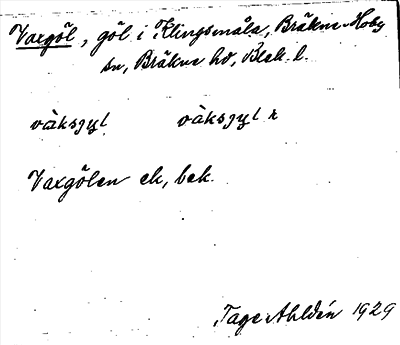 Vaxgöl, göl i Klingsmåla, Bräkne-Hoby
sn, Bräkne hd, Blek. l.
vàksjyl vàksjyl r
Vaxgölen ek, bek.
Tage Ahldén 1929